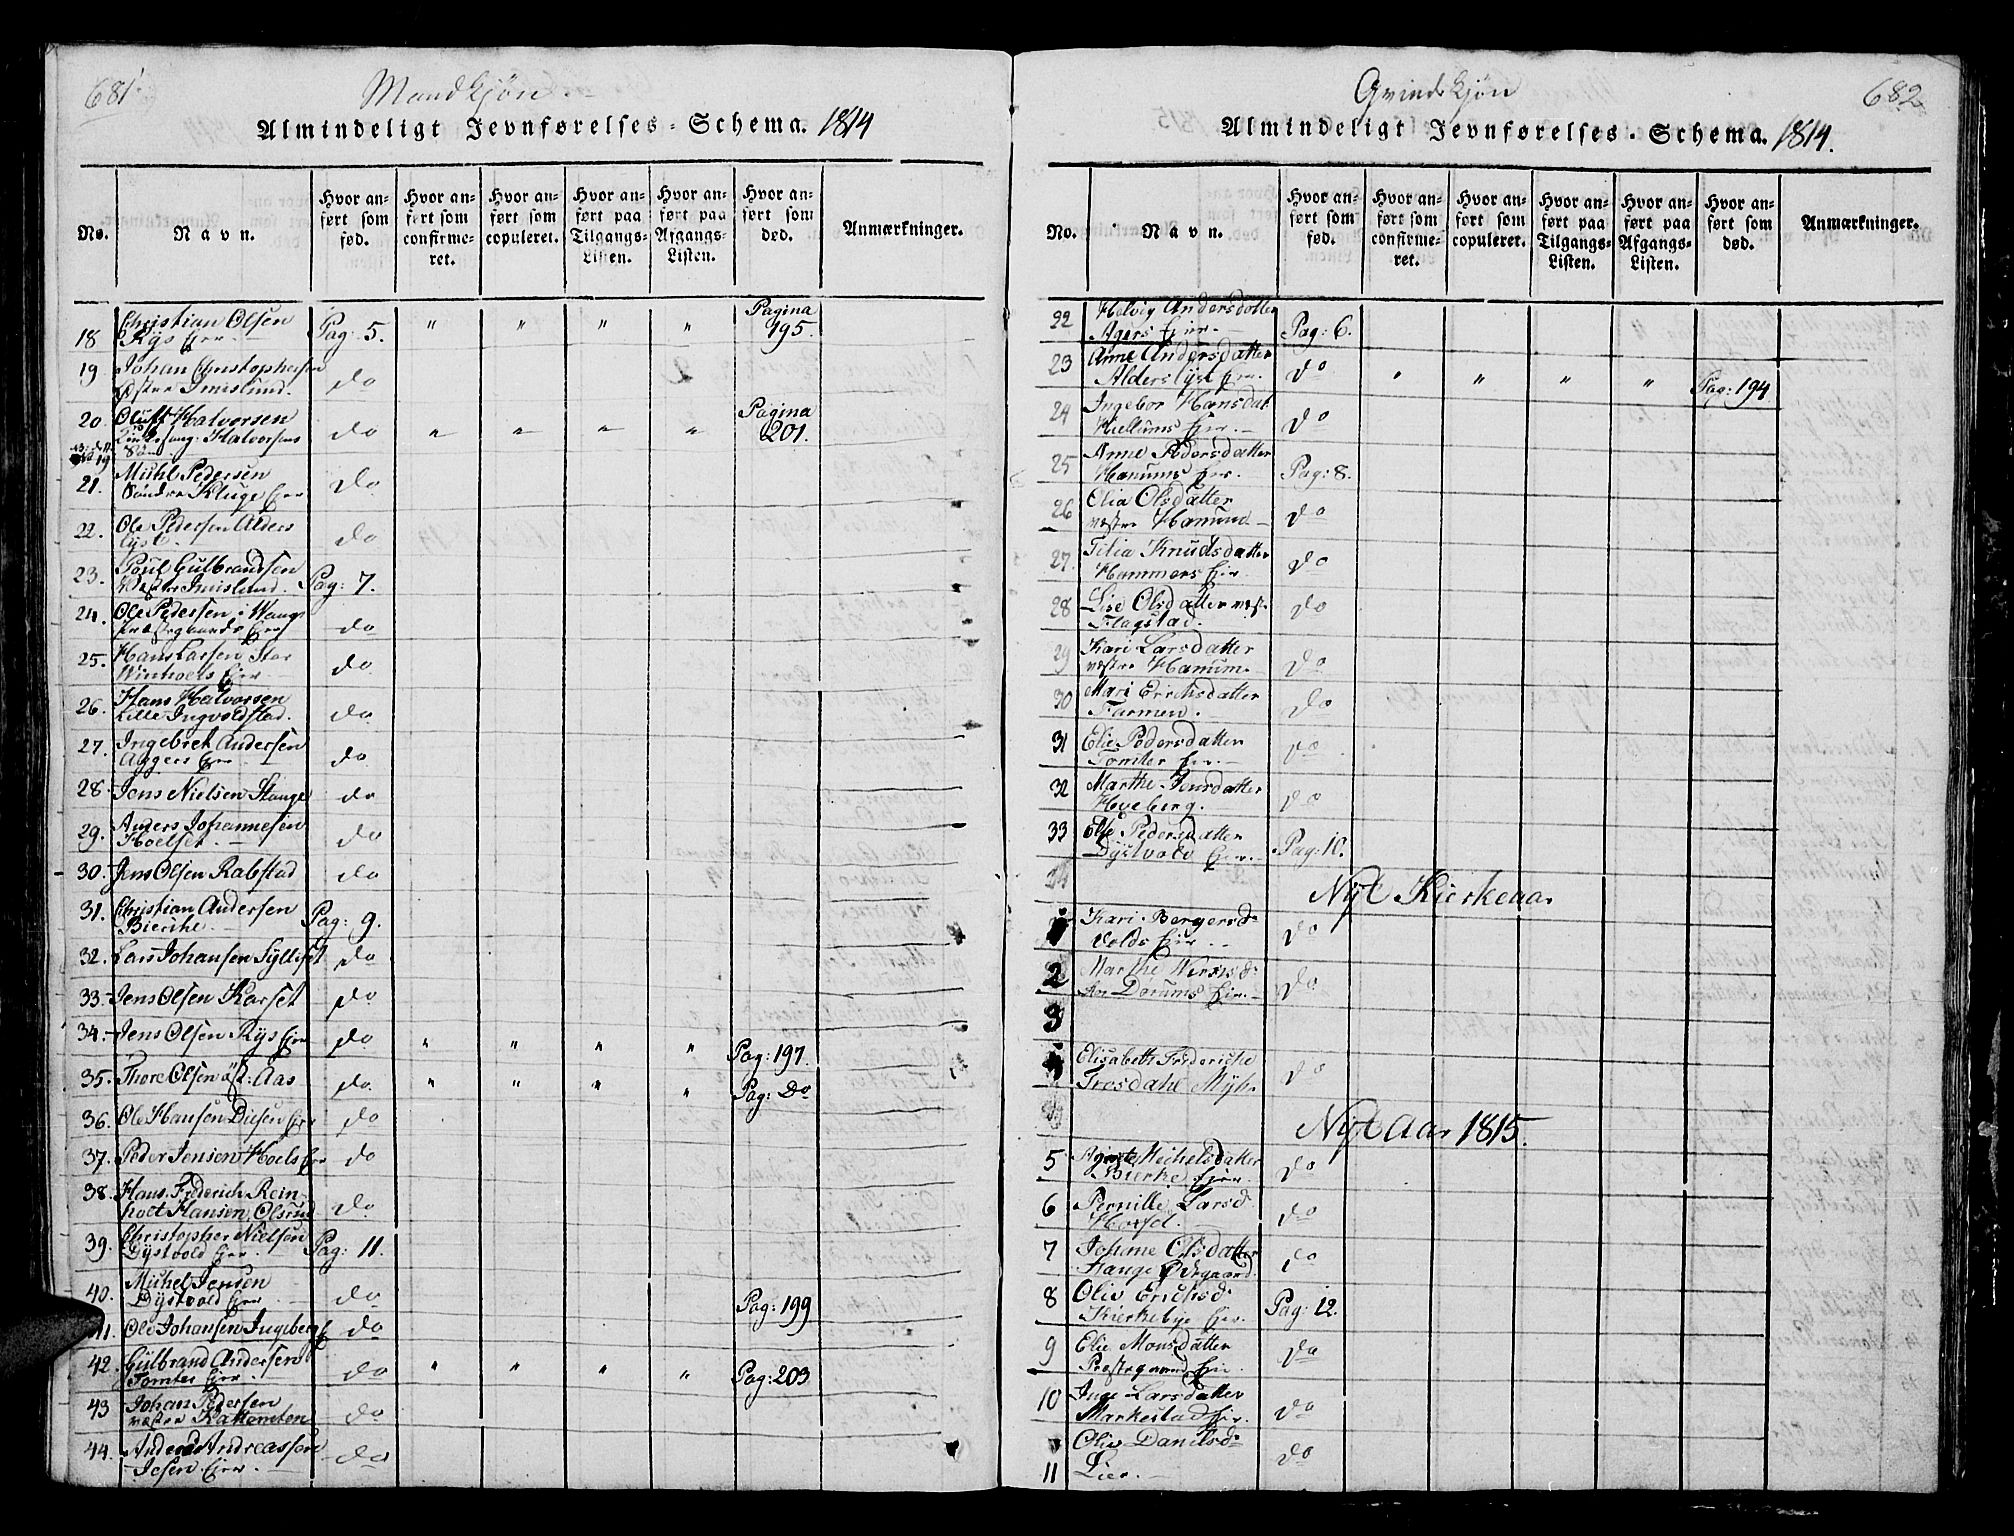 681
Mandkjøn
Almindeligt Jevnførelses-Schema. 1814
No.
Navn.
Hvor anført som fød.
Hvor anført som confirmeret.
Hvor anført som copuleret.
Hvor anført paa Tilgangs-Listen.
Hvor anført paa Afgangs-Listen.
Hvor anført som død.
Anmærkninger.
18 Christian Olsen Rÿs Eier. Pag: 5. " " " " Pagina 195.
19 Johan Christophersen Østre Imislund. do
20 Oluff Halvorsen Halvorsens do " " " " Pagina 201.
21. Michl Pedersen Søndre Kluge Eier do
22. Ole Pedersen Alderslÿst. do
23. Poul Gulbrandsen Vestre Imislund. Pag: 7.
24. Ole Pedersen i Wangs Præstegaards Eier do
25. Hans Larsen Stor Winholts Eier do
26. Hans Halvorsen Lille Ingvoldstad. do
27. Ingebret Andersen Aggers Eier do
28. Jens Nielsen Stange do
29. Anders Johannesen Hoelset. do
30. Jens Olsen Rabstad do
31. Christian Andersen Bierche. Pag: 9.
32. Lars Johansen Sÿlliset do
33. Jens Olsen Karset do
34. Jens Olsen Rÿs Eier do " " " " Pag: 197.
35. Thore Olsen øst: Aas do " " " " Pag: Do
36. Ole Hansen Disen Eier do
37. Peder Jensen Hoels Eier do
38. Hans Frederich Reinholt Hansen, Olsrud do
39. Christopher Nielsen Dÿstvold Eier. Pag: 11.
40. Michel Jensen Dÿstvold Eier do Pag: 199
41. Ole Johansen Ingeberg E do
42. Gulbrand Andersen Tomter Eier. do " " " " Pag: 203
43 Johan Pedersen vestre Kattomten do
44. Anders Andreassen Jesen Eier. do
682
Qvindekjøn
Almindeligt Jevnførelses-Schema. 1814.
No.
Navn.
Hvor anført som fød.
Hvor anført som confirmeret.
Hvor anført som copuleret.
Hvor anført paa Tilgangs-Listen.
Hvor anført paa Afgangs-Listen.
Hvor anført som død.
Anmærkninger.
22 Helvig Andersdatter Agers Eier. Pag: 6.
23 Anne Andersdatter Alderslÿst Eier. do " " " " Pag: 194
24 Ingebor Hansdat Hiellums Eier. do
25 Anne Pedersdatter Hanums Eier. Pag: 8.
26 Olia Olsdatter vestre Hanum do
27. Tilia Knudsdatter Hammers Eier. do
28 Lise Olsdatter vest. Flagstad. do
29 Kari Larsdatter vestre Hanum. do
30 Mari Erichsdatter Farmen. do
31 Elie Pedersdatter Tomter Eier. do
32 Marthe Iversdatter Hveberg. do
33 Else Pedersdatter Dÿstvold Eier. Pag: 10.
Nÿt Kierkeaar
1 Kari Bergersd Volds Eier. do
2 Marthe do
3
4 Elisabeth Frideriche Trosdahl Mÿhr do
Nÿt Aar 1815.
5 Agnete Michelsdatter Bierke Eier. do
6 Pernille Larsd Horsel. do
7 Johanne Olsdatter Hauge Ødegaard do
8 Oliv Erichsd. Kierkebye Eier. Pag: 12.
9 Elie Monsdatter Præstegaard Eier. do
10 Inge Larsdatter Markestad Eier. do
11 Oliv Danielsd Lier. do